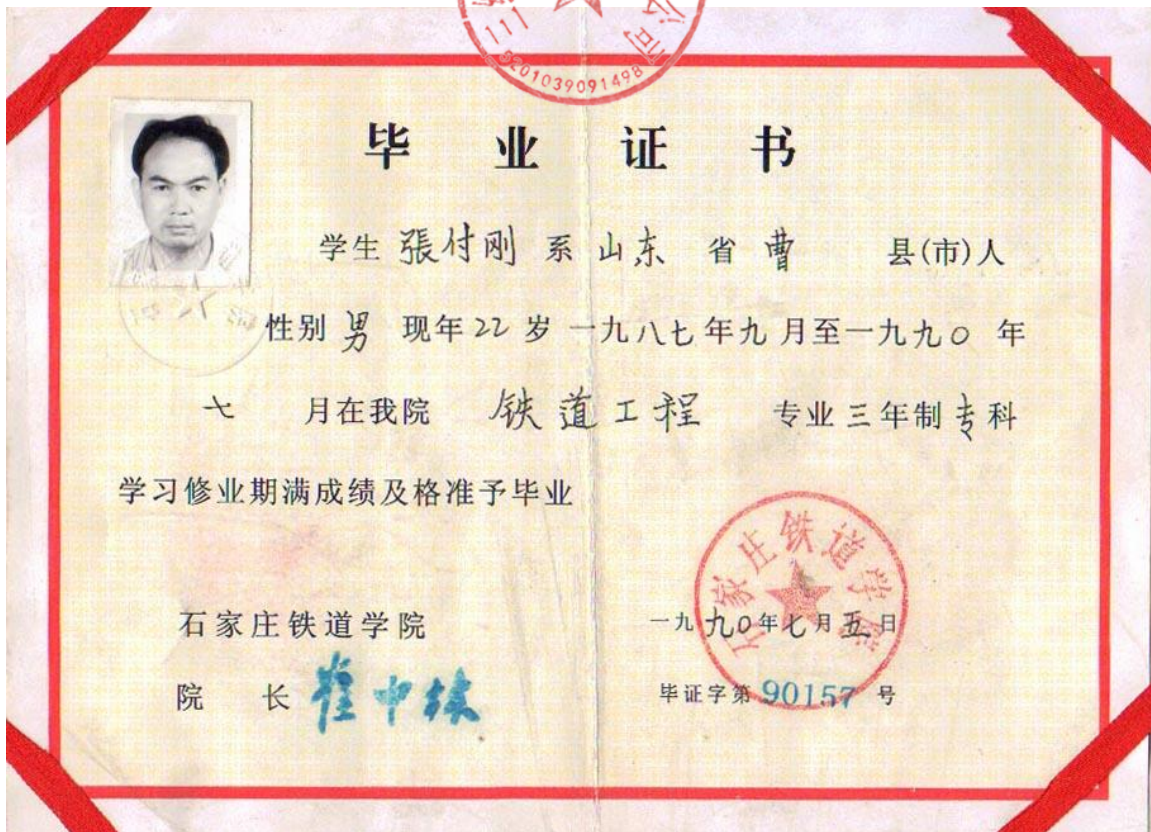 公司
111
0201039091498
毕业证书
学生 張付刚 系 山东 省 曹 县(市)人
性别 男 现年 22 岁 一九八七年九月至一九九〇年
七 月在我院 铁道工程 专业三年制专科
学习修业期满成绩及格准予毕业
石家庄铁道学院
石家庄铁道学院
一九九〇年七月五日
院 长 崔中林
毕证字第 90157 号